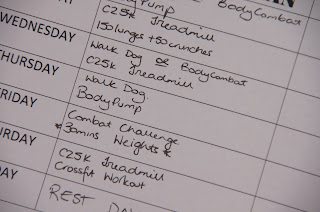 BodyCombat
BodyPump
WEDNESDAY
C25K Treadmill
150 lunges + 50 crunches
THURSDAY
Walk Dog OR BodyCombat
C25K Treadmill
FRIDAY
Walk Dog
BodyPump
Combat Challenge
*30mins Weights*
URDAY
C25K Treadmill
Crossfit Workout
REST